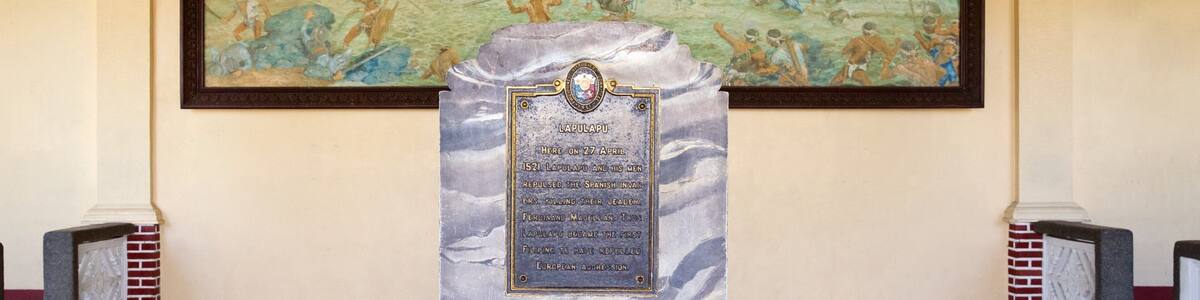 LAPULAPU
HERE ON 27 APRIL
1521 LAPULAPU AND HIS MEN
REPULSED THE SPANISH INVAD-
ERS, KILLING THEIR LEADER,
FERDINAND MAGELLAN. THUS,
LAPULAPU BECAME THE FIRST
FILIPINO TO HAVE REPELLED
EUROPEAN AGGRESSION.